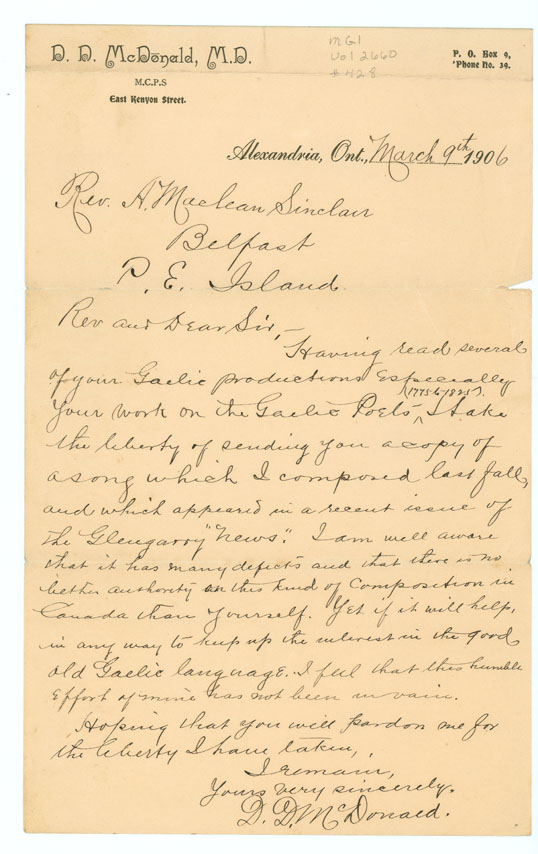 D. D. McDonald, M.D.
M.C.P.S
East Kenyon Street.
MG1
Vol 2660
#428
P. O. Box 9,
'Phone No. 39.
Alexandria, Ont., March 9th 1906
Rev. A. Maclean Sinclair
Belfast
P. E. Island.
Rev and Dear Sir,—
Having read several
of your Gaelic productions Especially
(1775 to 1825)
Your work on the Gaelic Poets ^ I take
the liberty of sending you a copy of
a song which I composed last fall,
and which appeared in a recent issue of
the Glengarry "News". I am well aware
that it has many defects and that there is no
better authority on this kind of Composition in
Canada than Yourself. Yet if it will help,
in any way to keep up the interest in the good
old Gaelic language. I feel that this humble
Effort of mine has not been in vain.
Hoping that you will pardon me for
the liberty I have taken,
I remain,
Yours very sincerely.
D. D. McDonald.